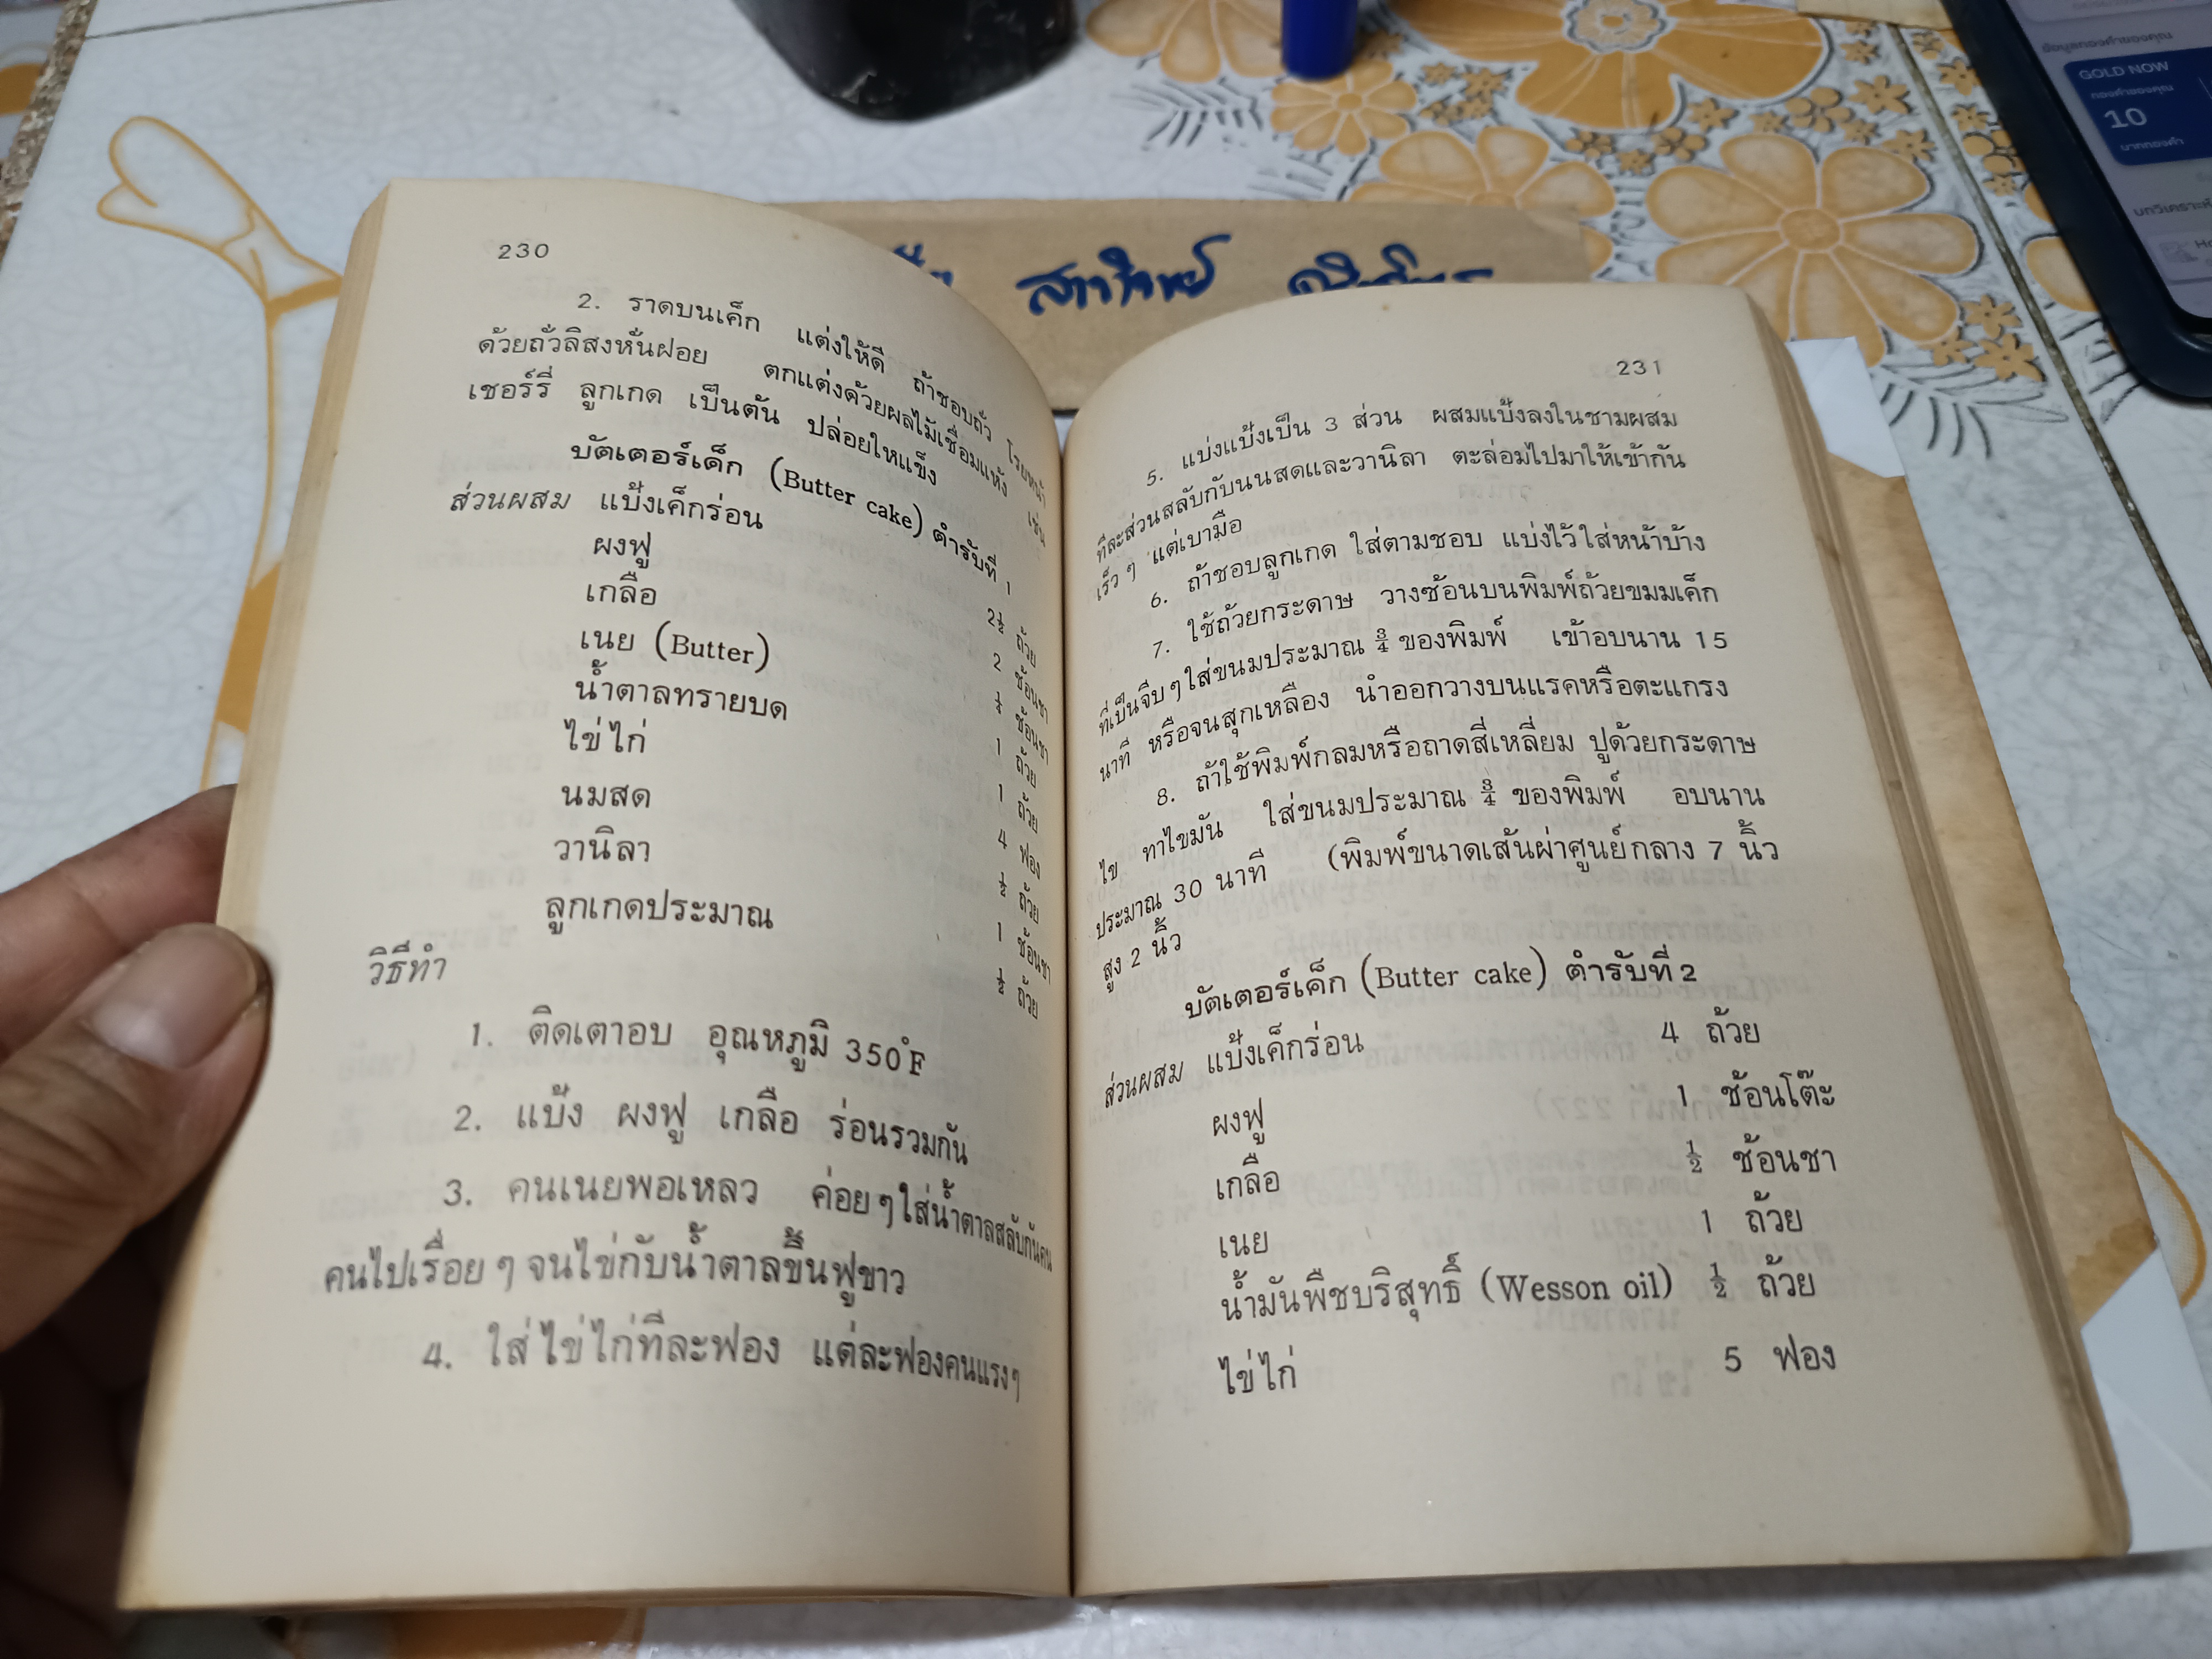 230
2. ราดบนเค็ก แต่งให้ดี ถ้าชอบถั่ว โรยหน้า
ด้วยถั่วลิสงหั่นฝอย ตกแต่งด้วยผลไม้เชื่อมแห้ง เช่น
เชอร์รี่ ลูกเกด เป็นต้น ปล่อยให้แข็ง
บัตเตอร์เค็ก (Butter cake) ตำรับที่ 1
ส่วนผสม แป้งเค็กร่อน 2½ ถ้วย
ผงฟู 2 ช้อนชา
เกลือ ¼ ช้อนชา
เนย (Butter) 1 ถ้วย
น้ำตาลทรายบด 1 ถ้วย
ไข่ไก่ 4 ฟอง
นมสด ½ ถ้วย
วานิลา 1 ช้อนชา
ลูกเกดประมาณ ½ ถ้วย
วิธีทำ
1. ติดเตาอบ อุณหภูมิ 350°F
2. แป้ง ผงฟู เกลือ ร่อนรวมกัน
3. คนเนยพอเหลว ค่อยๆใส่น้ำตาลสลับกันคน
คนไปเรื่อยๆ จนไข่กับน้ำตาลขึ้นฟูขาว
4. ใส่ไข่ไก่ทีละฟอง แต่ละฟองคนแรงๆ
231
5. แบ่งแป้งเป็น 3 ส่วน ผสมแป้งลงในชามผสม
ทีละส่วนสลับกับนนสดและวานิลา ตะล่อมไปมาให้เข้ากัน
เร็วๆ แต่เบามือ
6. ถ้าชอบลูกเกด ใส่ตามชอบ แบ่งไว้ใส่หน้าบ้าง
7. ใช้ถ้วยกระดาษ วางซ้อนบนพิมพ์ถ้วยขมมเค็ก
ที่เป็นจีบๆใส่ขนมประมาณ ¾ ของพิมพ์ เข้าอบนาน 15
นาที หรือจนสุกเหลือง นำออกวางบนแรคหรือตะแกรง
8. ถ้าใช้พิมพ์กลมหรือถาดสี่เหลี่ยม ปูด้วยกระดาษ
ไข ทาไขมัน ใส่ขนมประมาณ ¾ ของพิมพ์ อบนาน
ประมาณ 30 นาที (พิมพ์ขนาดเส้นผ่าศูนย์กลาง 7 นิ้ว
สูง 2 นิ้ว
บัตเตอร์เค็ก (Butter cake) ตำรับที่ 2
ส่วนผสม แป้งเค็กร่อน 4 ถ้วย
ผงฟู 1 ช้อนโต๊ะ
เกลือ ½ ช้อนชา
เนย 1 ถ้วย
น้ำมันพืชบริสุทธิ์ (Wesson oil) ½ ถ้วย
ไข่ไก่ 5 ฟอง
ข้อมูลทองคำของคุณ
GOLD NOW
ทองคำของคุณ
10
บาททองคำ